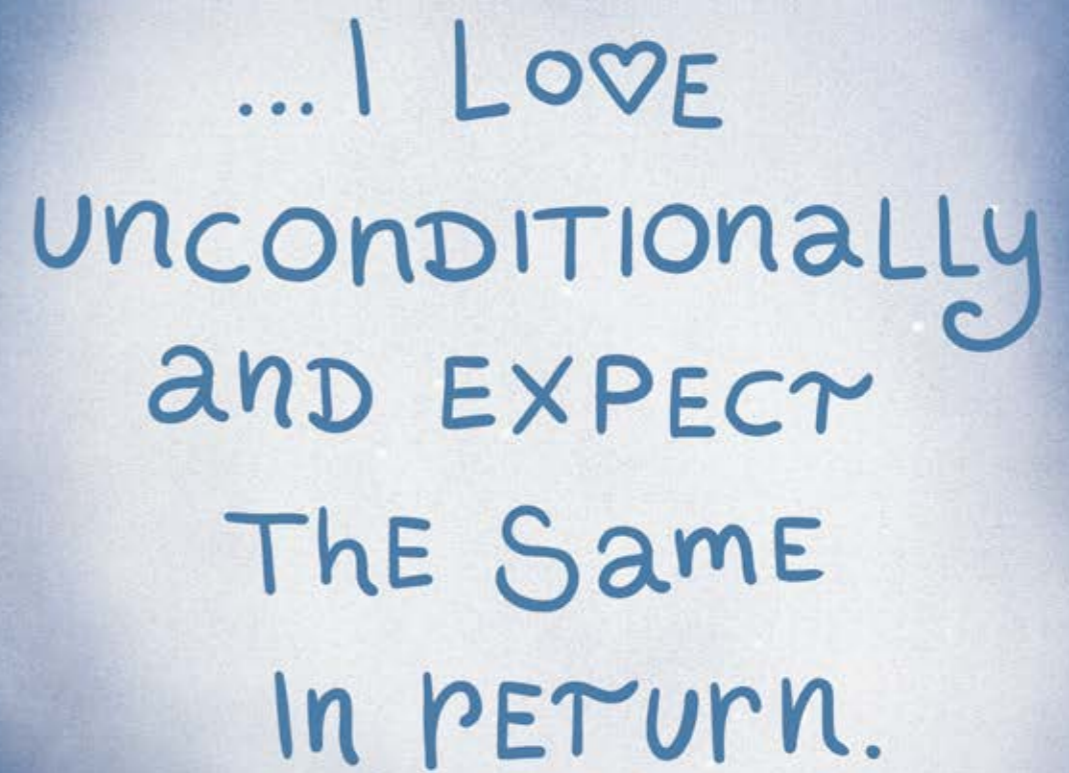 ...I Lo♡E
unconDITIonaLLy
anD EXPECT
ThE SamE
In rETurn.